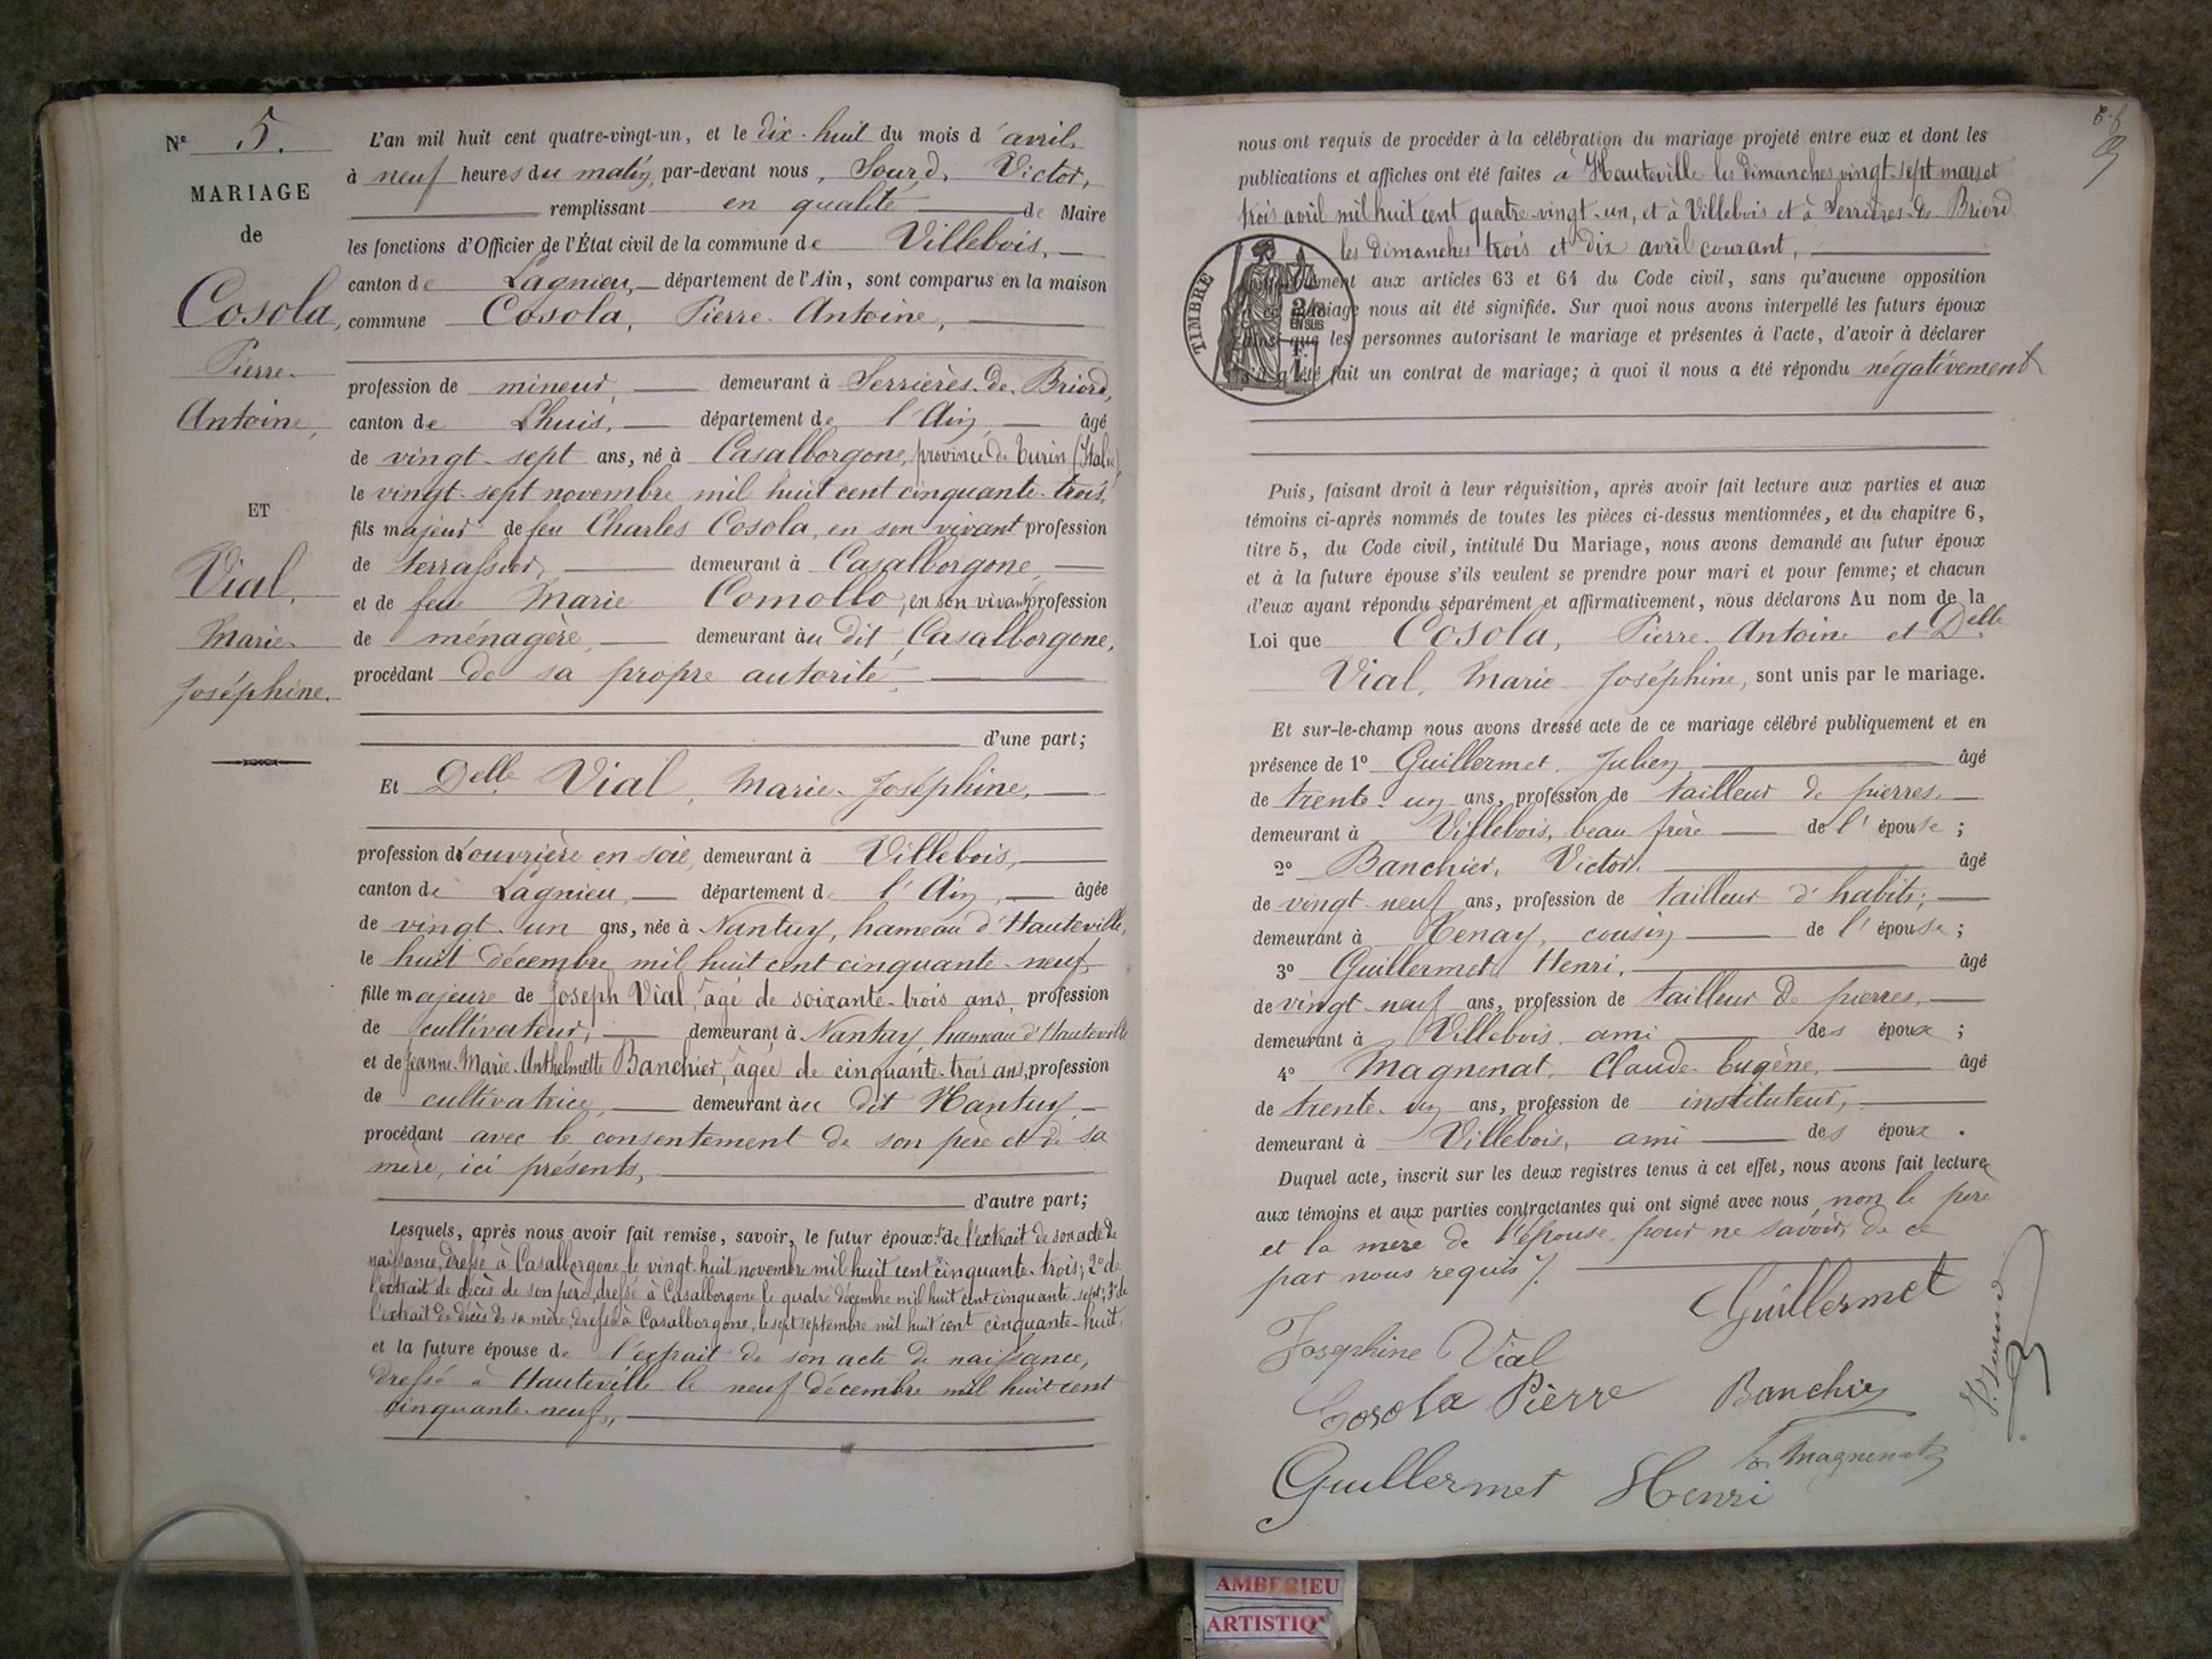 Nº 5.
MARIAGE
de
Cosola,
Pierre-
Antoine,
ET
Vial,
Marie-
Joséphine.
L'an mil huit cent quatre-vingt-un, et le dix-huit du mois d'avril,
à neuf heures du matin, par-devant nous, Sourd, Victor,
remplissant en qualité de Maire
les fonctions d'Officier de l'État civil de la commune de Villebois,
canton de Lagnieu, département de l'Ain, sont comparus en la maison
commune Cosola, Pierre-Antoine,
profession de mineur, demeurant à Serrières-de-Briord,
canton de Lhuis, département de l'Ain, âgé
de vingt-sept ans, né à Casalborgone, province de Turin (Italie),
le vingt-sept novembre mil huit cent cinquante-trois,
fils majeur de feu Charles Cosola, en son vivant profession
de terrassier, demeurant à Casalborgone,
et de feue Marie Comollo, en son vivant profession
de ménagère, demeurant au dit Casalborgone,
procédant de sa propre autorité,
d'une part;
Et Delle Vial, Marie-Joséphine,
profession d'ouvrière en soie, demeurant à Villebois,
canton de Lagnieu, département de l'Ain, âgée
de vingt-un ans, née à Nantuy, hameau d'Hauteville,
le huit décembre mil huit cent cinquante-neuf,
fille majeure de Joseph Vial, âgé de soixante-trois ans, profession
de cultivateur, demeurant à Nantuy, hameau d'Hauteville
et de Jeanne-Marie-Anthelmette Banchier, âgée de cinquante-trois ans, profession
de cultivatrice, demeurant au dit Nantuy,
procédant avec le consentement de son père et de sa
mère, ici présents,
d'autre part;
Lesquels, après nous avoir fait remise, savoir, le futur époux: 1º de l'extrait de son acte de
naissance, dressé à Casalborgone le vingt-huit novembre mil huit cent cinquante-trois; 2º de
l'extrait de décès de son père, dressé à Casalborgone le quatre décembre mil huit cent cinquante-sept; 3º de
l'extrait de décès de sa mère, dressé à Casalborgone, le sept septembre mil huit cent cinquante-huit,
et la future épouse de l'extrait de son acte de naissance,
dressé à Hauteville le neuf décembre mil huit cent
cinquante-neuf,
nous ont requis de procéder à la célébration du mariage projeté entre eux et dont les
publications et affiches ont été faites à Hauteville les dimanches vingt-sept mars et
trois avril mil huit cent quatre-vingt-un, et à Villebois et à Serrières-de-Briord
les dimanches trois et dix avril courant,
TIMBRE
aux articles 63 et 64 du Code civil, sans qu'aucune opposition
mariage nous ait été signifiée. Sur quoi nous avons interpellé les futurs époux
ainsi que les personnes autorisant le mariage et présentes à l'acte, d'avoir à déclarer
s'il a été fait un contrat de mariage; à quoi il nous a été répondu négativement
Puis, faisant droit à leur réquisition, après avoir fait lecture aux parties et aux
témoins ci-après nommés de toutes les pièces ci-dessus mentionnées, et du chapitre 6,
titre 5, du Code civil, intitulé Du Mariage, nous avons demandé au futur époux
et à la future épouse s'ils veulent se prendre pour mari et pour femme; et chacun
d'eux ayant répondu séparément et affirmativement, nous déclarons Au nom de la
Loi que Cosola, Pierre-Antoine et Delle
Vial, Marie-Joséphine, sont unis par le mariage.
Et sur-le-champ nous avons dressé acte de ce mariage célébré publiquement et en
présence de 1º Guillermet, Julien âgé
de trente-un ans, profession de tailleur de pierres,
demeurant à Villebois, beau frère de l'épouse;
2º Banchier, Victor, âgé
de vingt-neuf ans, profession de tailleur d'habits,
demeurant à Tenay, cousin de l'épouse;
3º Guillermet Henri, âgé
de vingt-neuf ans, profession de tailleur de pierres,
demeurant à Villebois, ami des époux;
4º Magnenat, Claude-Eugène, âgé
de trente-un ans, profession de instituteur,
demeurant à Villebois, ami des époux.
Duquel acte, inscrit sur les deux registres tenus à cet effet, nous avons fait lecture
aux témoins et aux parties contractantes qui ont signé avec nous, non le père
et la mère de l'épouse pour ne savoir, de ce
par nous requis.
Guillermet
Josephine Vial
Cosola Pierre Banchier
Magnenat
Guillermet Henri
V. Sourd
AMBERIEU
ARTISTIQ